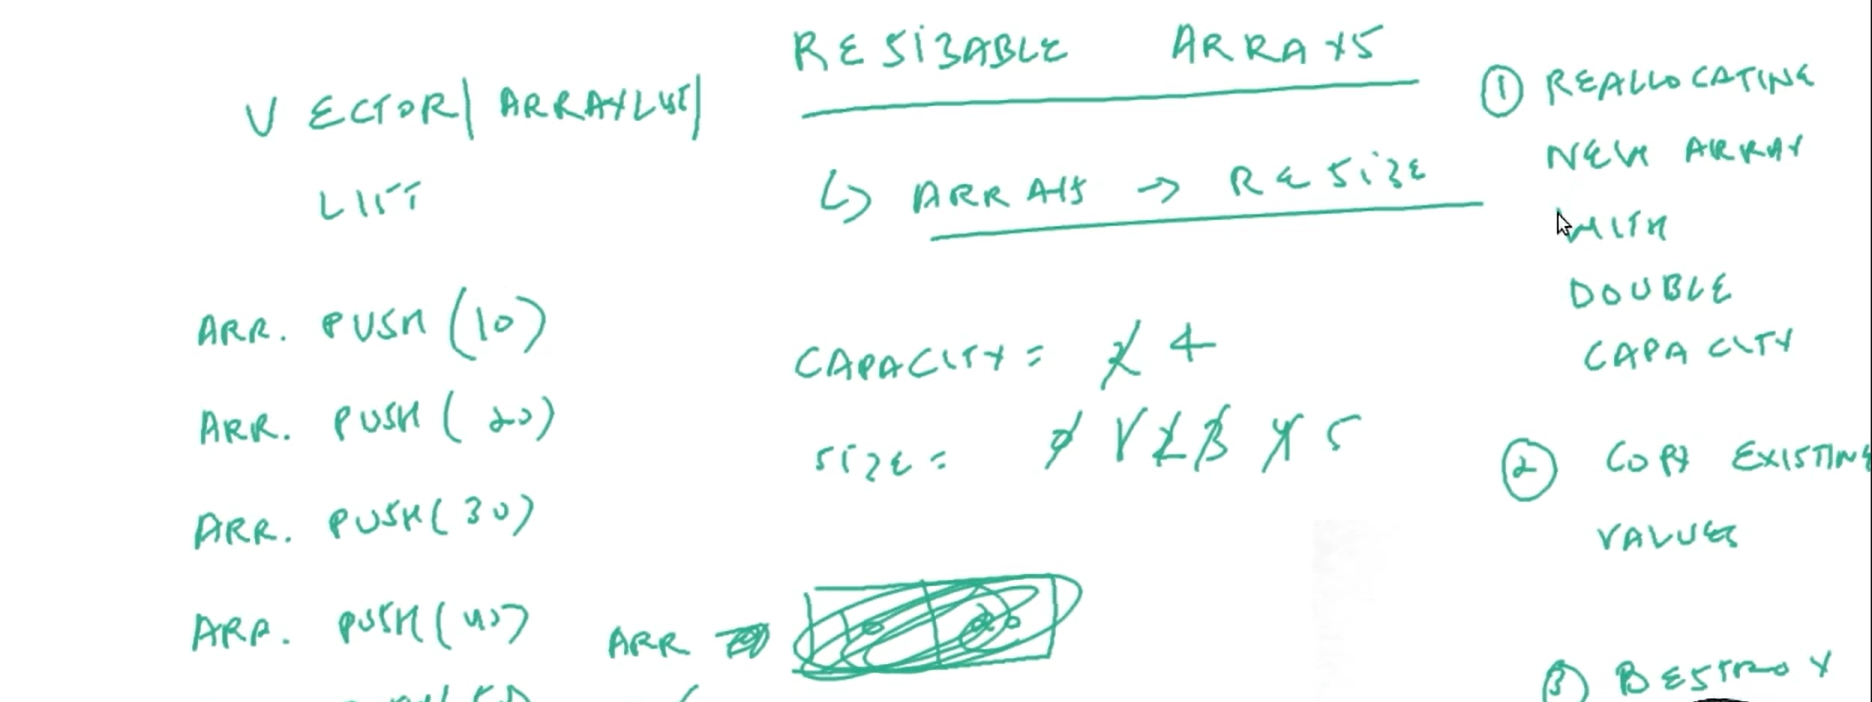 RESIZABLE ARRAYS
VECTOR/ ARRAYLIST/
LIST
↳ ARRAYS → RESIZE
ARR. PUSH (10)
ARR. PUSH ( 20)
ARR. PUSH( 30)
ARR. PUSH( 40)
CAPACITY = 2 4
SIZE = 0 1 2 3 4 5
ARR
20
① REALLOCATING
NEW ARRAY
WITH
DOUBLE
CAPACITY
② COPY EXISTING
VALUES
③ DESTROY